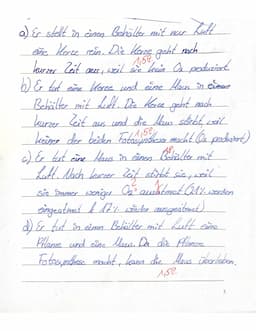 a) Er stellt in einen Behälter mit nur Luft
eine Kerze rein. Die Kerze geht nach
1,5P.
kurzer Zeit aus, weil sie kein O₂ produziert.
b) Er tut eine Kerze und eine Maus in einen
Behälter mit Luft. Die Kerze geht nach
kurzer Zeit aus und die Maus stirbt weil
1,5P.
keiner der beiden Fotosynthese macht (O₂ produziert)
c) Er tut eine Maus in einen Behälter mit
Luft. Nach kurzer Zeit stirbt sie, weil
sie immer weniger O₂ ausatmet (21% werden
eingeatmet & 17% wieder ausgeatmet)
d) Er tut in einen Behälter mit Luft eine
Pflanze und eine Maus. Da die Pflanze
Fotosynthese macht, kann die Maus überleben.
1,5P.